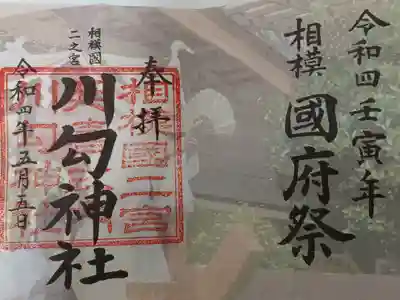 令和四壬寅年
相模
國府祭
奉拝
相模國
二之宮
川勾神社
令和四年五月五日
相模國二宮